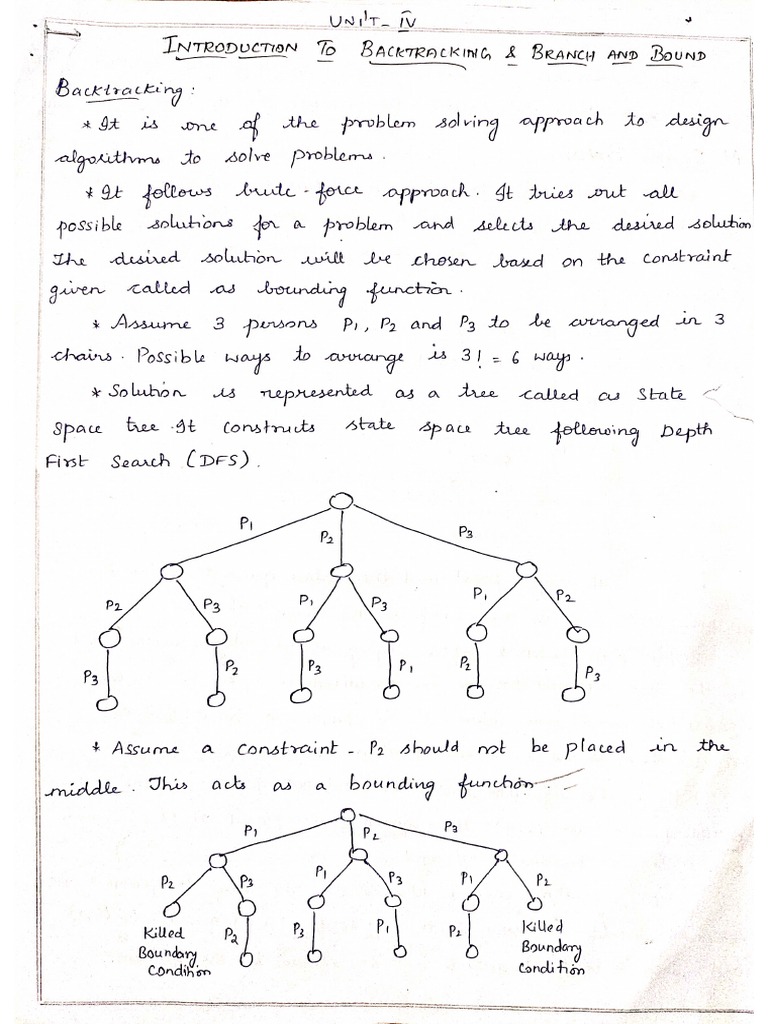 UNIT-IV
INTRODUCTION TO BACKTRACKING & BRANCH AND BOUND
Backtracking:
* It is one of the problem solving approach to design
algorithms to solve problems.
* It follows brute-force approach. It tries out all
possible solutions for a problem and selects the desired solution
The desired solution will be chosen based on the constraint
given called as bounding function.
* Assume 3 persons P1, P2 and P3 to be arranged in 3
chairs. Possible ways to arrange is 3! = 6 ways.
* Solution is represented as a tree called as State
space tree. It constructs state space tree following Depth
First Search (DFS).
P1 P2 P3
P2 P3 P1 P3 P1 P2
P3 P2 P3 P1 P2 P3
* Assume a constraint - P2 should not be placed in the
middle. This acts as a bounding function.
P1 P2 P3
P2 P3 P1 P3 P1 P2
Killed P2 P3 P1 P2 Killed
Boundary Boundary
Condition Condition